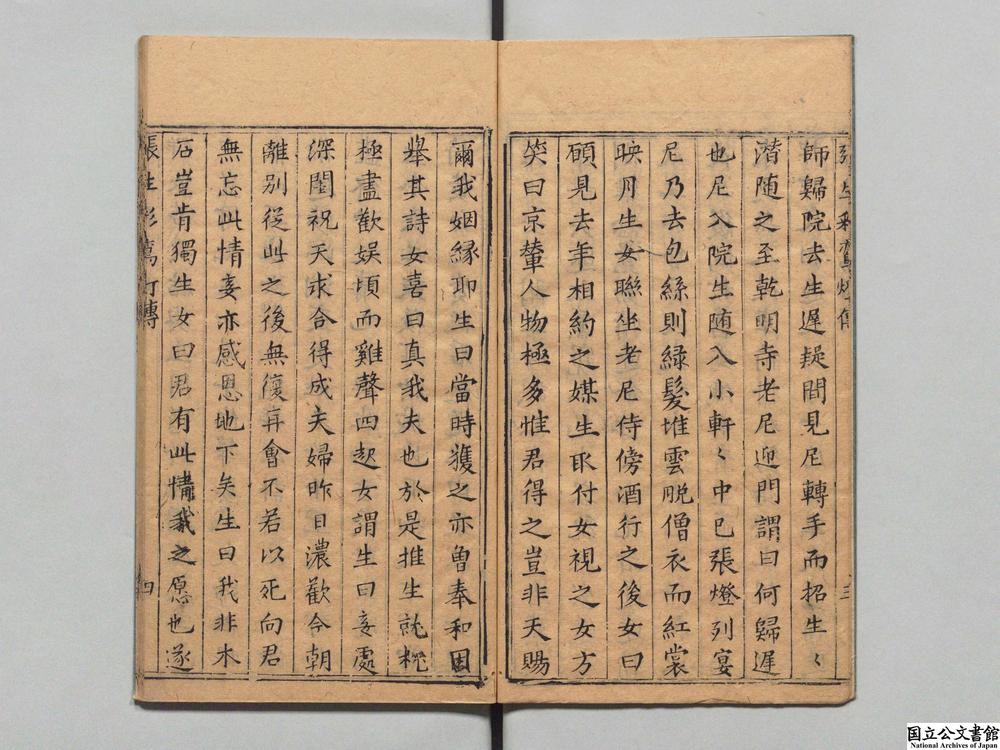 張生彩鸞燈傳
三
師歸院去生遲疑間見尼轉手而招生〻
潛随之至乾明寺老尼迎門謂曰何歸遲
也尼入院生随入小軒〻中已張燈列宴
尼乃去包絲則緑髮堆雲脫僧衣而紅裳
映月生女聯坐老尼侍傍酒行之後女曰
願見去年相約之媒生取付女視之女方
笑曰京輦人物極多惟君得之豈非天賜
爾我姻緣耶生曰當時獲之亦曽奉和因
舉其詩女喜曰真我夫也於是推生就枕
極盡歡娛頃而雞聲四起女謂生曰妾處
深閨祝天求合得成夫婦昨日濃歡今朝
離別從此之後無復再會不若以死向君
無忘此情妾亦感恩地下矣生曰我非木
石豈肯獨生女曰君有此情我之愿也遂
張生彩鸞灯傳
四
国立公文書館
National Archives of Japan